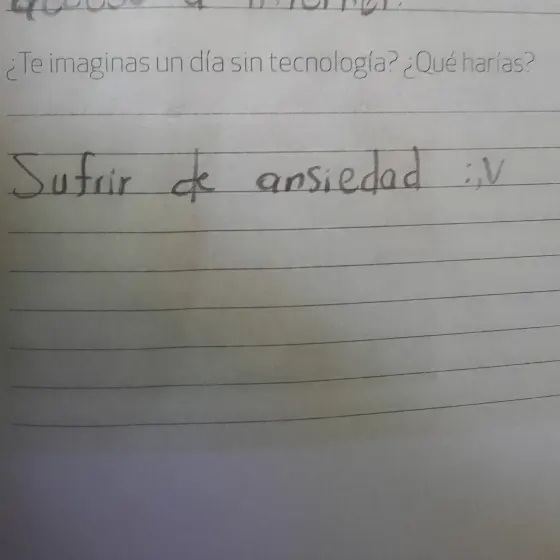 ¿Te imaginas un día sin tecnología? ¿Qué harías?
Sufrir de ansiedad :,V